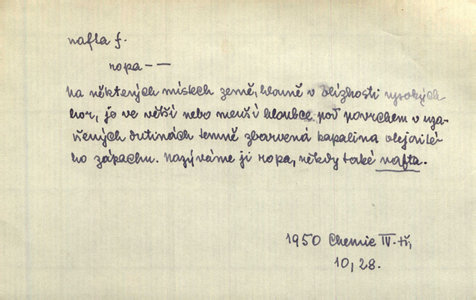 nafta f.
ropa --
Na některých místech země, hlavně v blízkosti vysokých
hor, je ve větší nebo menší hloubce pod povrchem v uza-
vřených dutinách temně zbarvená kapalina olejovité-
ho zápachu. Nazýváme ji ropa, někdy také nafta.
1950 Chemie IV. tř,
10, 28.